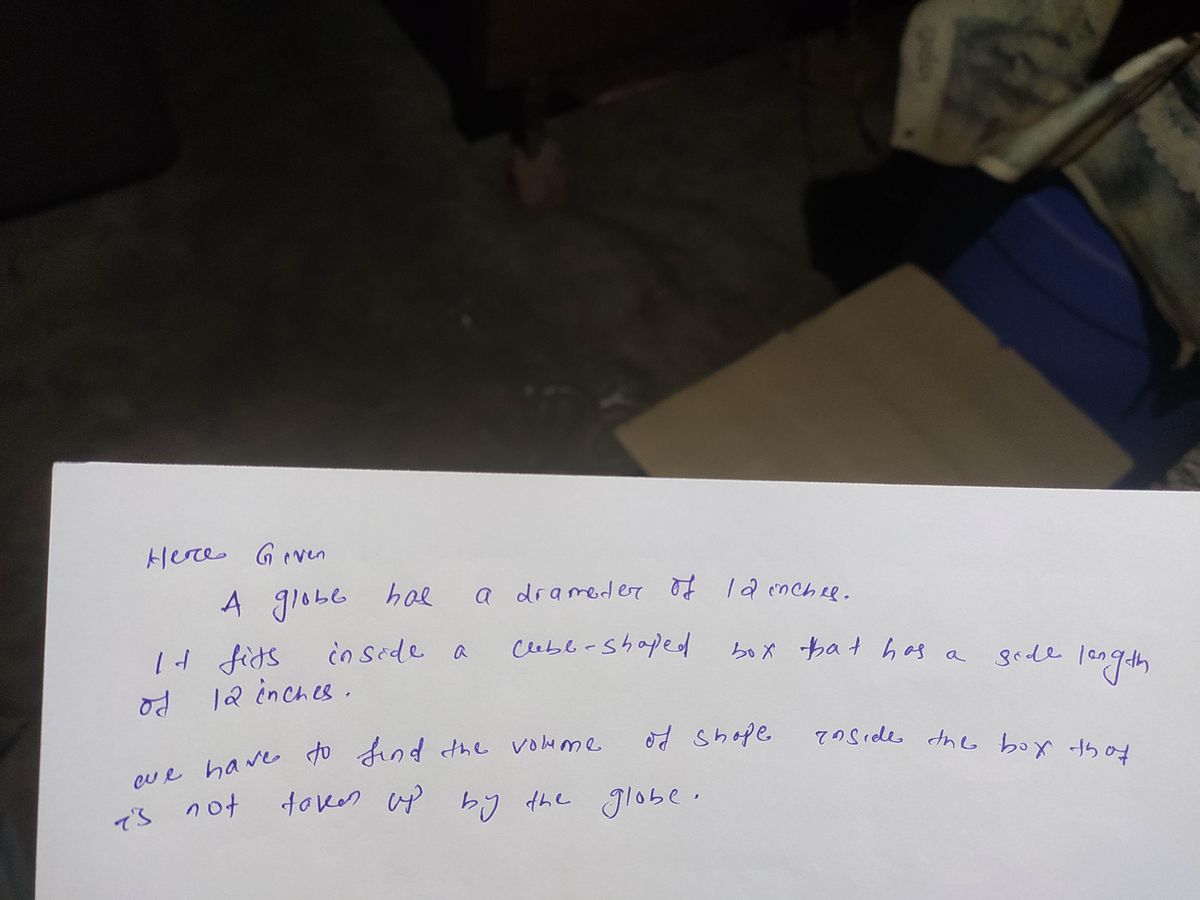 Here Given
A globe has a diameter of 12 inches.
It fits inside a cube-shaped box that has a side length
of 12 inches.
we have to find the volume of shape inside the box that
is not taken up by the globe.